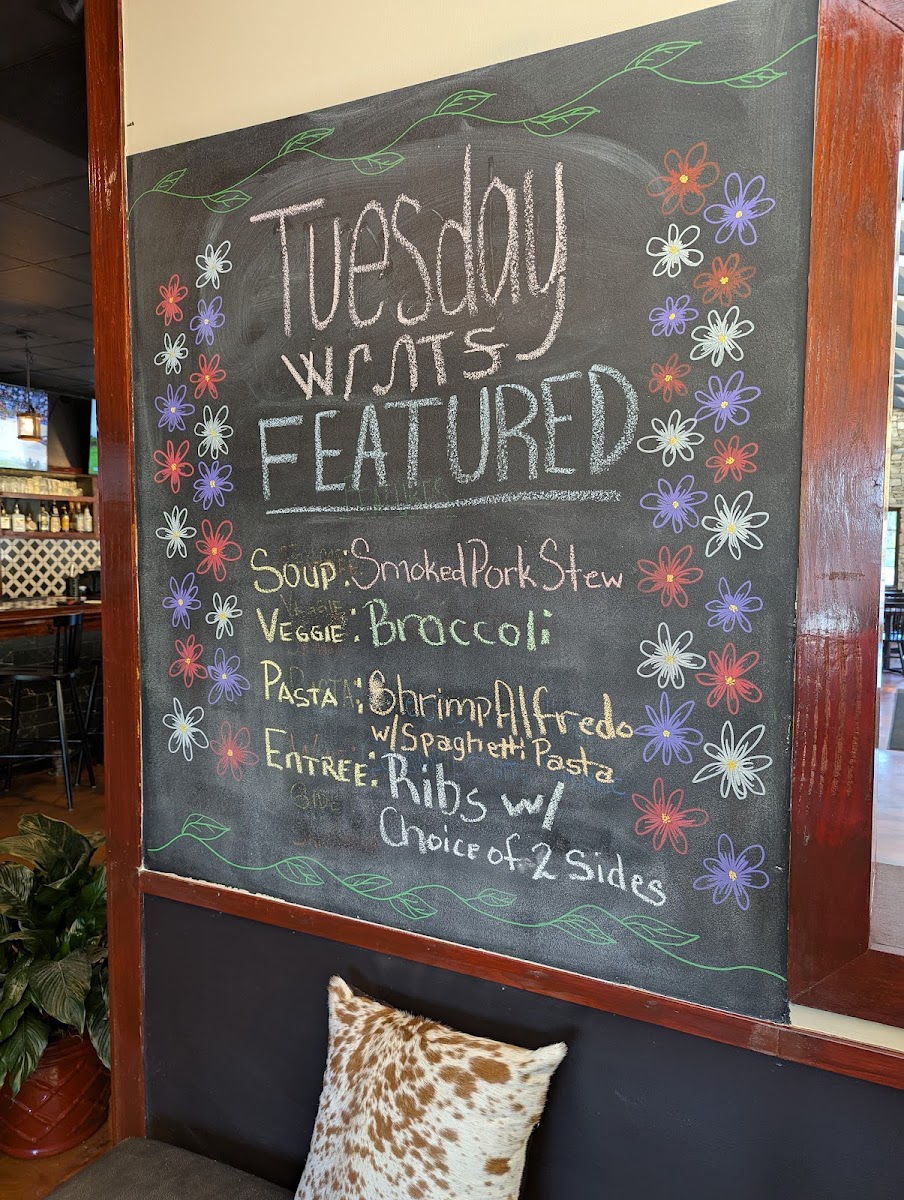 Tuesday
FEATURED
Soup: Smoked Pork Stew
Veggie: Broccoli
Pasta: Shrimp Alfredo
w/ Spaghetti Pasta
Entree: Ribs w/
Choice of 2 Sides